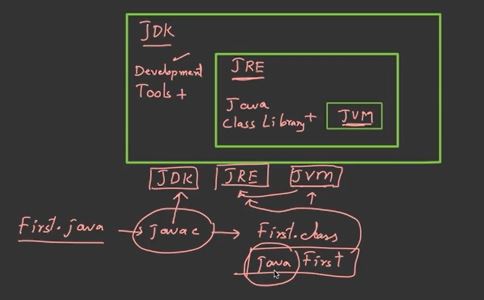 JDK
Development
Tools +
JRE
Java
Class Library +
JVM
JDK JRE JVM
First.java javac First.class
java First